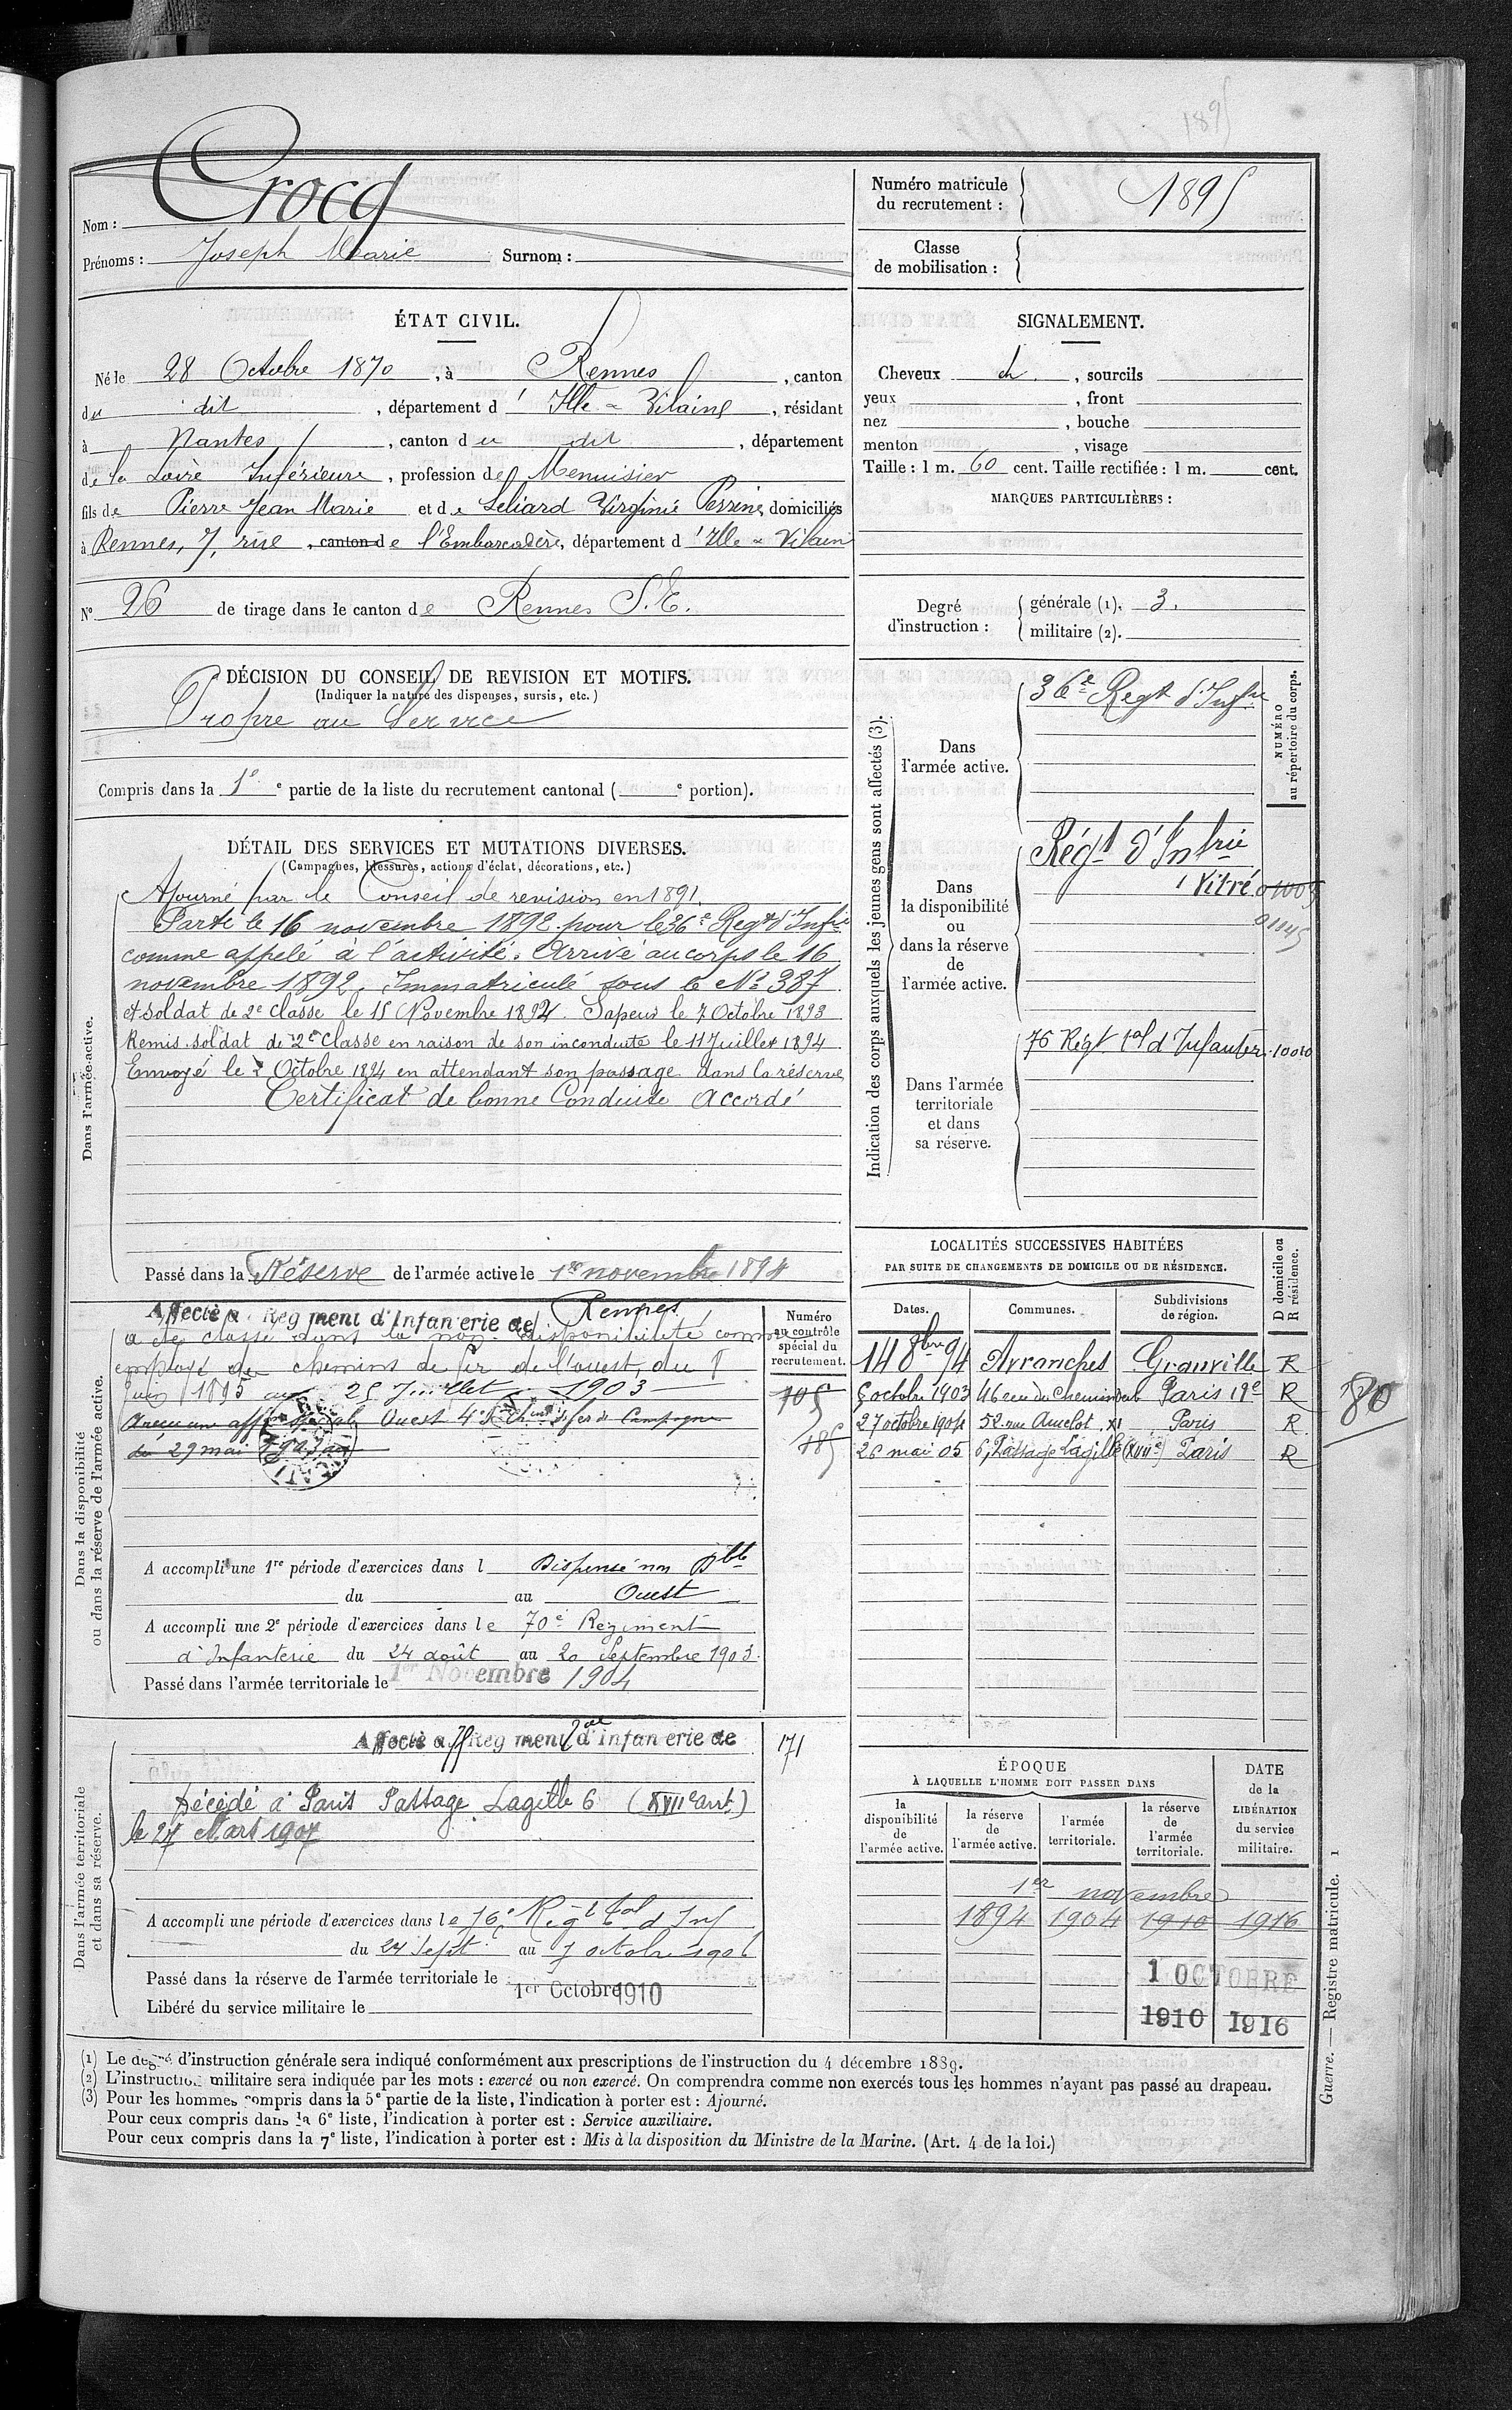 1895
Nom : Crocq
Prénoms : Joseph Marie Surnom :
Numéro matricule du recrutement : 1895
Classe de mobilisation :
ÉTAT CIVIL.
Né le 28 Octobre 1870, à Rennes, canton
du dit, département d'Ille-&-Vilaine, résidant
à Nantes, canton du dit, département
de la Loire Inférieure, profession de Menuisier
fils de Pierre Jean Marie et de Leliard Virginie Perrine, domiciliés
à Rennes, 7, rue, canton de l'Embarcadère, département d'Ille & Vilaine
N° 26 de tirage dans le canton de Rennes S.E.
SIGNALEMENT.
Cheveux ch , sourcils
yeux , front
nez , bouche
menton , visage
Taille : 1 m. 60 cent. Taille rectifiée : 1 m. cent.
MARQUES PARTICULIÈRES :
Degré d'instruction : générale (1). 3.
militaire (2).
DÉCISION DU CONSEIL DE REVISION ET MOTIFS.
(Indiquer la nature des dispenses, sursis, etc.)
Propre au Service
Compris dans la 1e e partie de la liste du recrutement cantonal ( e portion).
DÉTAIL DES SERVICES ET MUTATIONS DIVERSES.
(Campagnes, blessures, actions d'éclat, décorations, etc.)
Dans l'armée active.
Ajourné par le Conseil de revision en 1891.
Parti le 16 novembre 1892 pour le 36e Regt d'Infie
comme appelé à l'activité. Arrivé au corps le 16
novembre 1892. Immatriculé sous le No 387
et soldat de 2e classe le 15 Novembre 1892. Sapeur le 7 Octobre 1893
Remis soldat de 2e Classe en raison de son inconduite le 11 Juillet 1894
Envoyé le 2 Octobre 1894 en attendant son passage dans la réserve
Certificat de bonne Conduite Accordé
Passé dans la Réserve de l'armée active le 1er novembre 1894
Indication des corps auxquels les jeunes gens sont affectés (3).
NUMÉRO au répertoire du corps.
Dans l'armée active.
36e Regt d'Infie
Dans la disponibilité ou dans la réserve de l'armée active.
Régt d'Infrie
Vitré
01145
Dans l'armée territoriale et dans sa réserve.
76 Régt tal d'Infanter.
Dans la disponibilité ou dans la réserve de l'armée active.
Numéro au contrôle spécial du recrutement.
Affecté a Régiment d'Infanterie de Rennes
a été classé dans la non-disponibilité comme
employé de chemins de fer de l'ouest, du
Juin 1895 au 25 Juillet 1903
Ouest 4e de Campagne
du 29 mai 1903 au
105
485
A accompli une 1re période d'exercices dans l Dispensé non Dble
du au Ouest
A accompli une 2e période d'exercices dans le 70e Régiment
d'Infanterie du 24 août au 20 Septembre 1903.
Passé dans l'armée territoriale le 1er Novembre 1904
LOCALITÉS SUCCESSIVES HABITÉES
PAR SUITE DE CHANGEMENTS DE DOMICILE OU DE RÉSIDENCE.
D domicile ou R résidence.
Dates. Communes. Subdivisions de région.
14 8bre 94 Avranches Granville R
5 octobre 1903 46 rue du Chemin vert Paris R
27 octobre 1904 52 rue Amelot XI Paris R
26 mai 05 6, Passage Lagille (XVIIe) Paris R
180
Dans l'armée territoriale et dans sa réserve.
Affecté a Régiment tal d'Infanterie de
171
Décédé à Paris Passage Lagille 6 (XVIIe arrt)
le 27 Mars 1907
A accompli une période d'exercices dans le 76e Régt tal d'Inf
du 24 Sept au 7 octobre 1906
Passé dans la réserve de l'armée territoriale le 1er Octobre 1910
Libéré du service militaire le
ÉPOQUE À LAQUELLE L'HOMME DOIT PASSER DANS
DATE de la LIBÉRATION du service militaire.
la disponibilité de l'armée active.
la réserve de l'armée active.
l'armée territoriale.
la réserve de l'armée territoriale.
1er novembre
1894 1904 1910 1916
1 OCTOBRE
1910 1916
(1) Le degré d'instruction générale sera indiqué conformément aux prescriptions de l'instruction du 4 décembre 1889.
(2) L'instruction militaire sera indiquée par les mots : exercé ou non exercé. On comprendra comme non exercés tous les hommes n'ayant pas passé au drapeau.
(3) Pour les hommes compris dans la 5e partie de la liste, l'indication à porter est : Ajourné.
Pour ceux compris dans la 6e liste, l'indication à porter est : Service auxiliaire.
Pour ceux compris dans la 7e liste, l'indication à porter est : Mis à la disposition du Ministre de la Marine. (Art. 4 de la loi.)
Guerre. — Registre matricule. 1